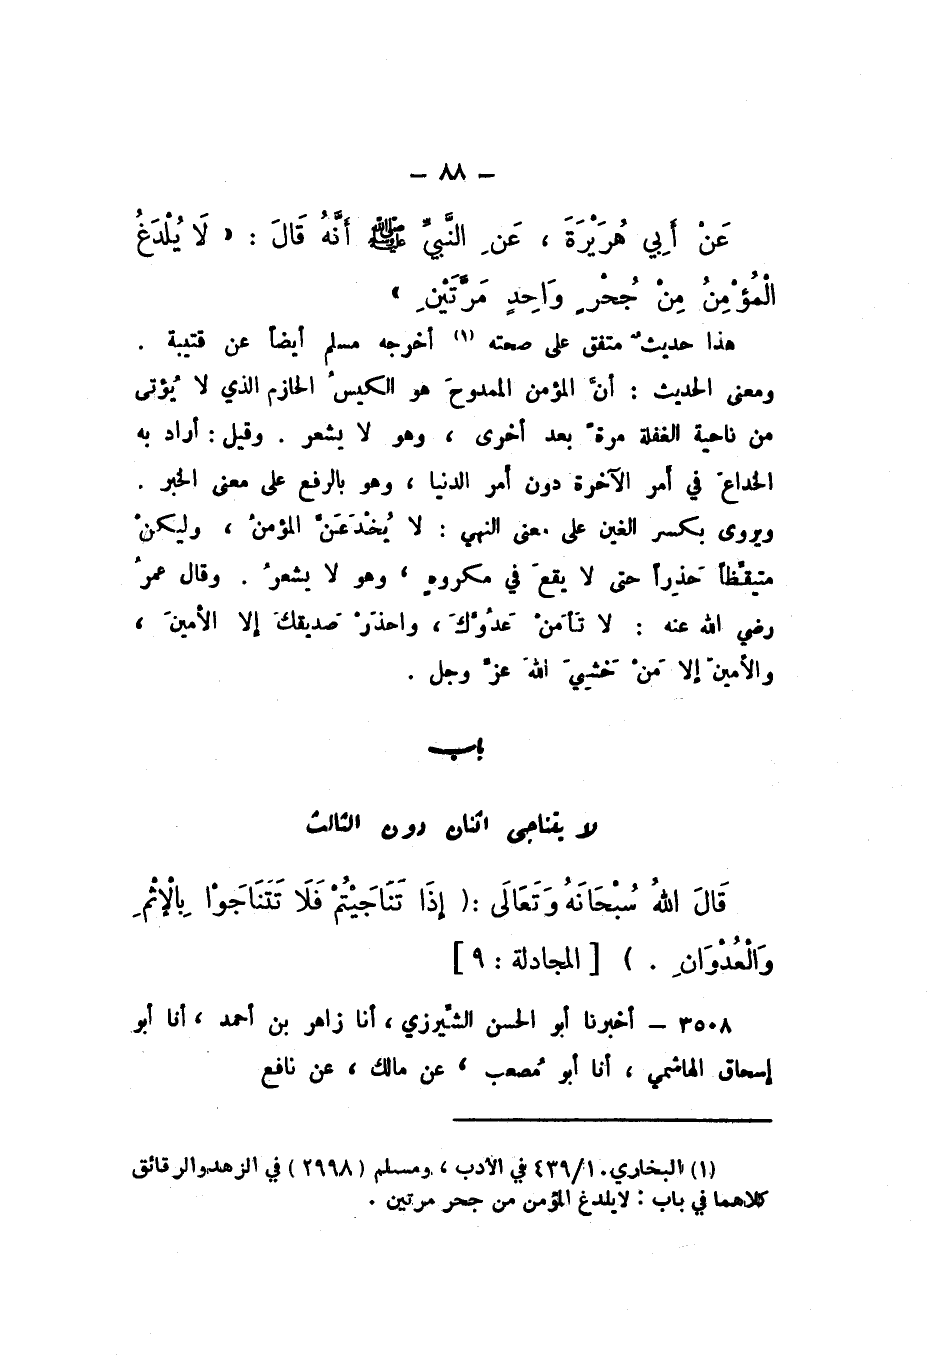 – ٨٨ –
عَنْ أَبِي هُرَيْرَةَ ، عَنِ النَّبِيِّ ﷺ أَنَّهُ قَالَ : « لَا يُلْدَغُ
الْمُؤْمِنُ مِنْ جُحْرٍ وَاحِدٍ مَرَّتَيْنِ »
هذا حديثٌ متفق على صحته (١) أخرجه مسلم أيضاً عن قتيبة .
ومعنى الحديث : أنَّ المؤمن الممدوحَ هو الكيسُ الحازم الذي لا يُؤتى
من ناحية الغفلة مرةً بعد أخرى ، وهو لا يشعر . وقيل : أراد به
الخداعَ في أمر الآخرة دون أمر الدنيا ، وهو بالرفع على معنى الخبر .
ويروى بكسر الغين على معنى النهي : لا يُخْدَعَنَّ المؤمنُ ، وليكنْ
متيقِّظاً حَذِراً حتى لا يقعَ في مكروهٍ ، وهو لا يشعرُ . وقال عمرُ
رضي الله عنه : لا تَأمَنْ عَدُوَّكَ ، واحذَرْ صَديقكَ إلا الأمينَ ،
والأمينَ إلا مَنْ خَشيَ اللهَ عزَّ وجل .
باب
لا يتناجى اثنان دون الثالث
قَالَ اللهُ سُبْحَانَهُ وَتَعَالَى : ( إِذَا تَنَاجَيْتُمْ فَلَا تَتَنَاجَوْا بِالْإِثْمِ
وَالْعُدْوَانِ . ) [ المجادلة : ٩ ]
٣٥٠٨ – أخبرنا أبو الحسن الشِّيرزي ، أنا زاهر بن أحمد ، أنا أبو
إسحاق الهاشمي ، أنا أبو مُصعب ، عن مالك ، عن نافع
(١) البخاري ٤٣٩/١٠ في الأدب ، ومسلم ( ٢٩٩٨ ) في الزهد والرقائق
كلاهما في باب : لا يلدغ المؤمن من جحر مرتين .